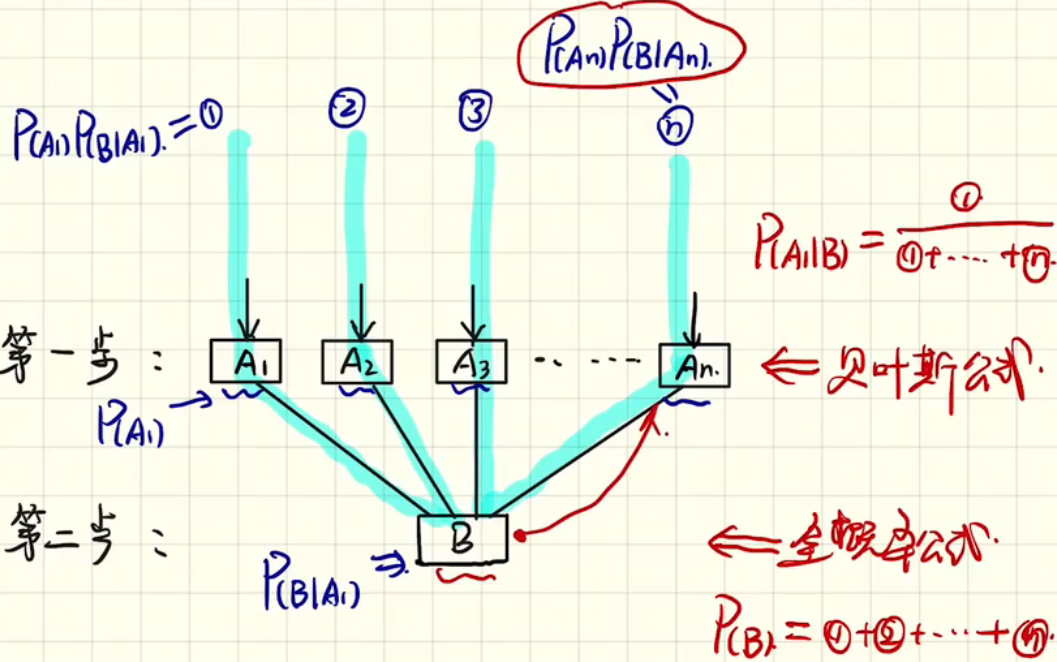 P(An)P(B|An).
P(A1)P(B|A1). = ① ② ③ ⓝ
P(A1|B) = ① / ①+····+ⓝ.
第一步： A1 A2 A3 ····· An. ⇐ 贝叶斯公式.
P(A1) →
第二步： B ⇐ 全概率公式.
P(B|A1) ⇒
P(B). = ①+②+···+ⓝ.